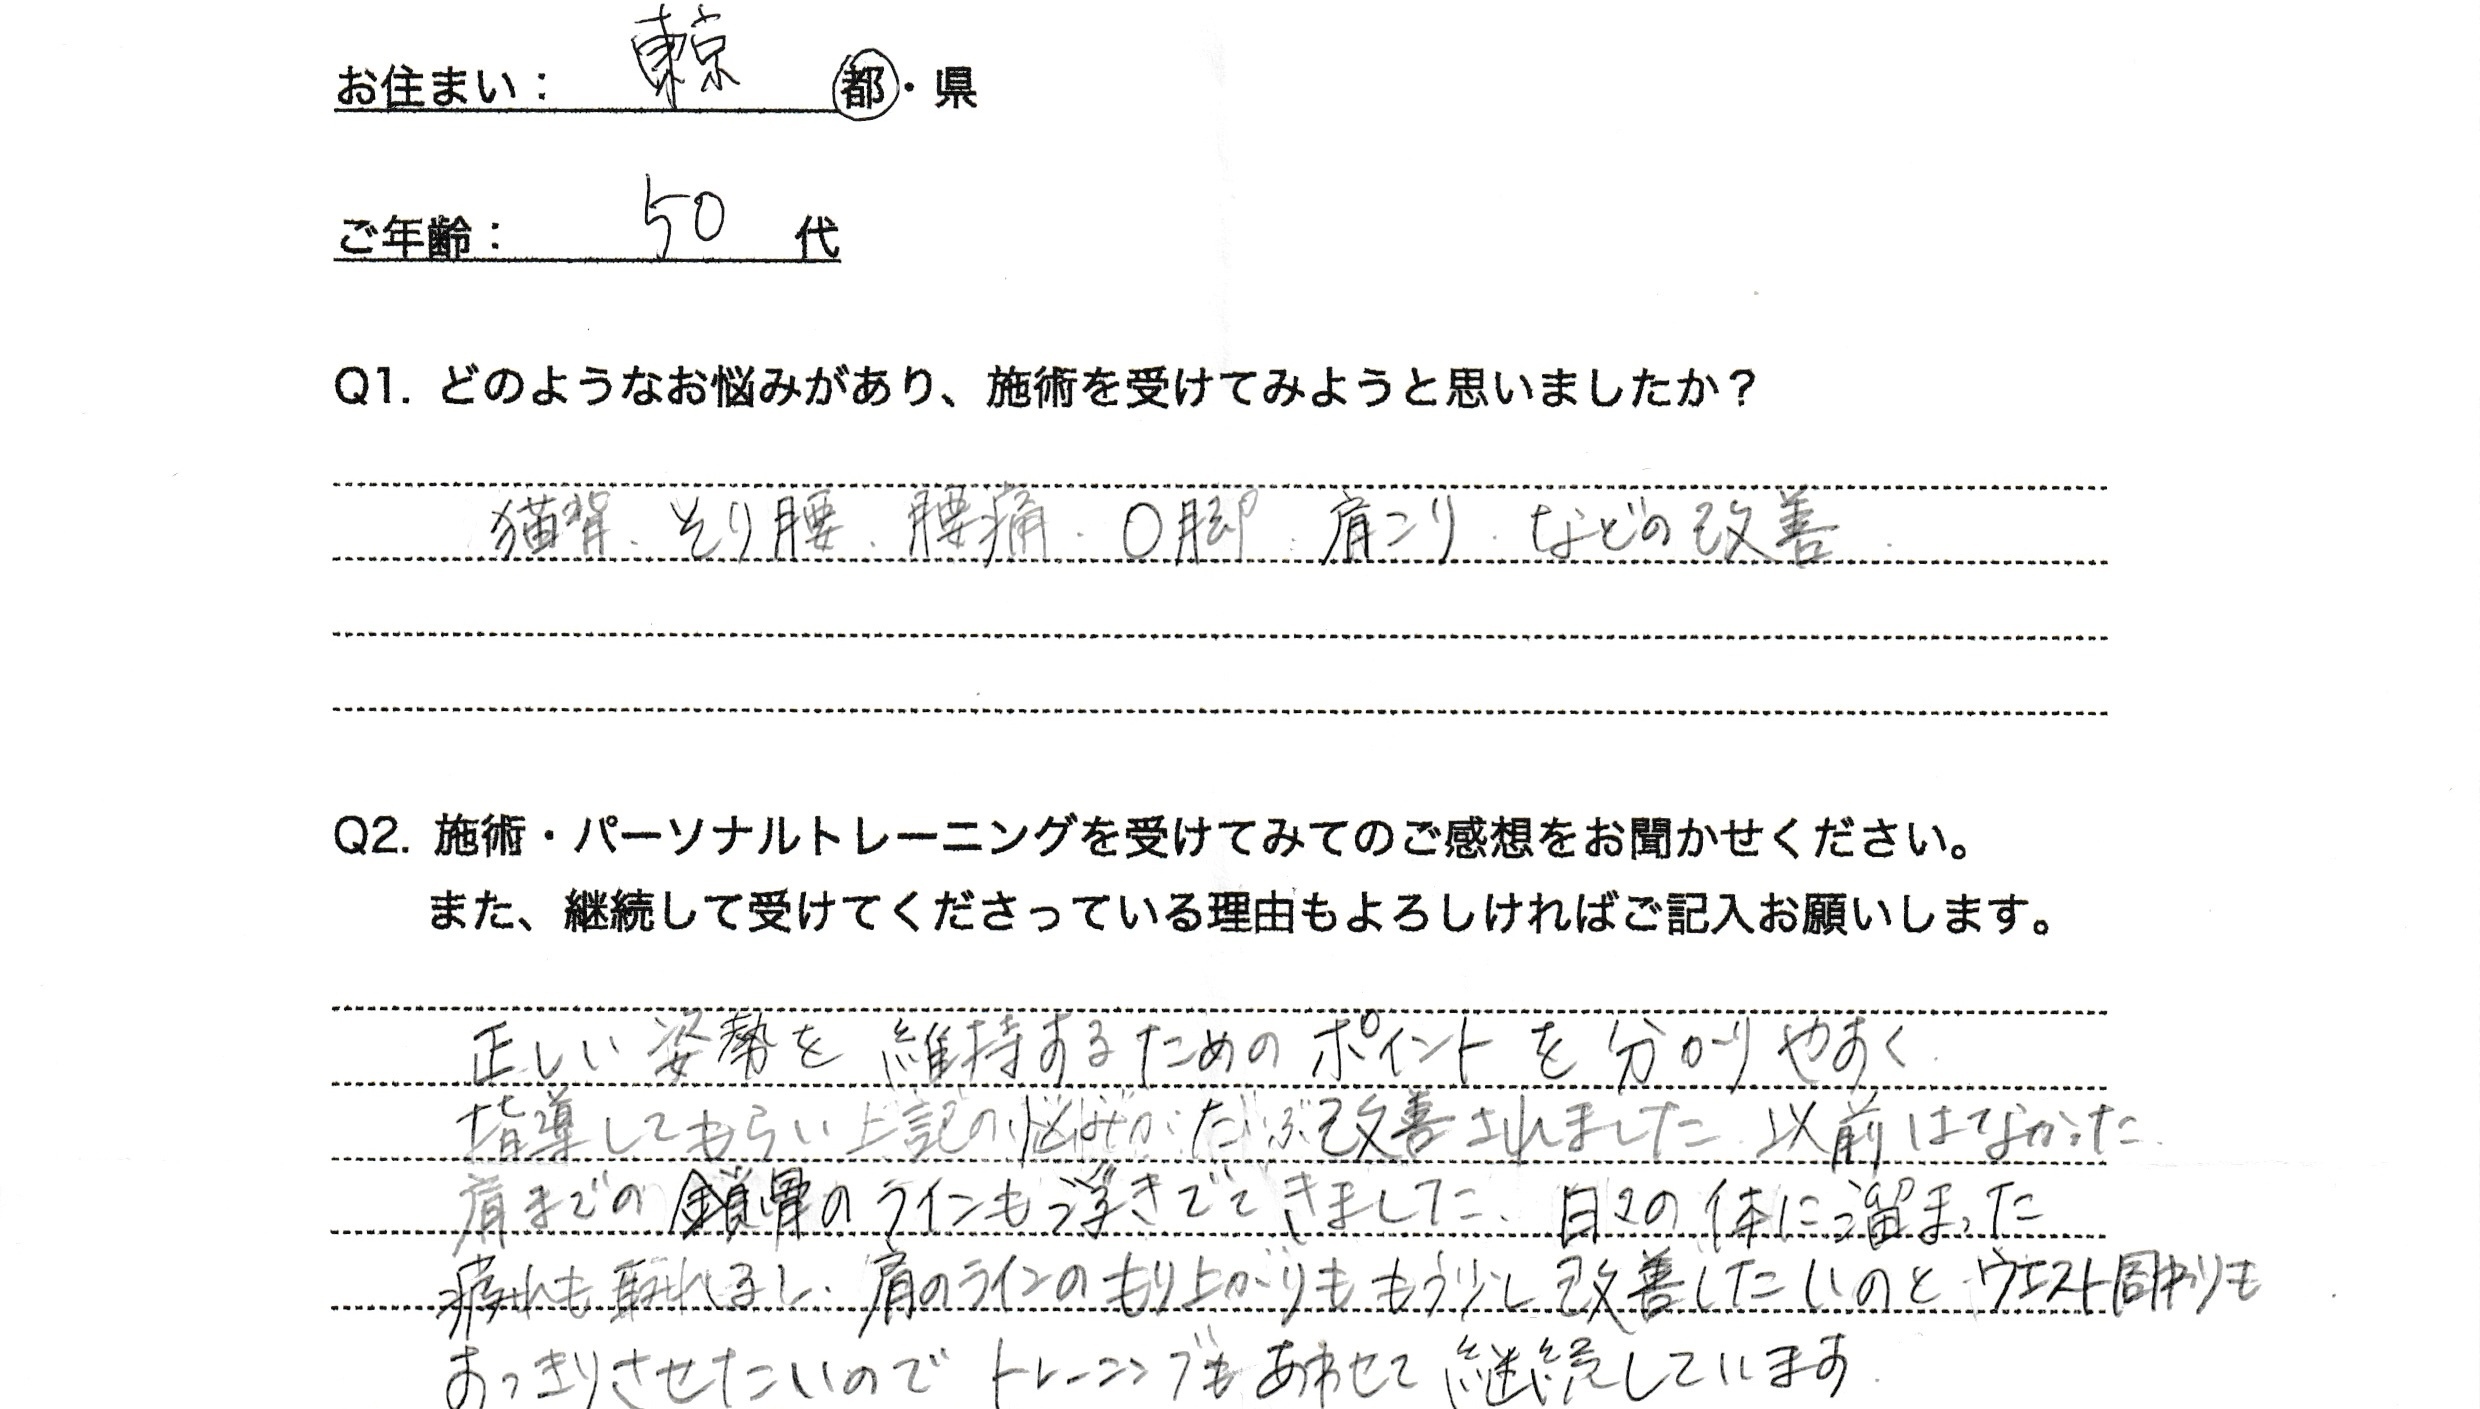 お住まい： 東京 都・県
ご年齢： 50 代
Q1. どのようなお悩みがあり、施術を受けてみようと思いましたか？
猫背、そり腰、腰痛、O脚、肩こり、などの改善、
Q2. 施術・パーソナルトレーニングを受けてみてのご感想をお聞かせください。
また、継続して受けてくださっている理由もよろしければご記入お願いします。
正しい姿勢を維持するためのポイントを分かりやすく
指導してもらい上記の悩みがだいぶ改善されました、以前はなかった
肩までの鎖骨のラインも浮きでてきました、日々の体に溜まった
疲れも取れるし、肩のラインのもり上がりももう少し改善したいのとウエスト周わりも
すっきりさせたいのでトレーニングもあわせて継続しています、